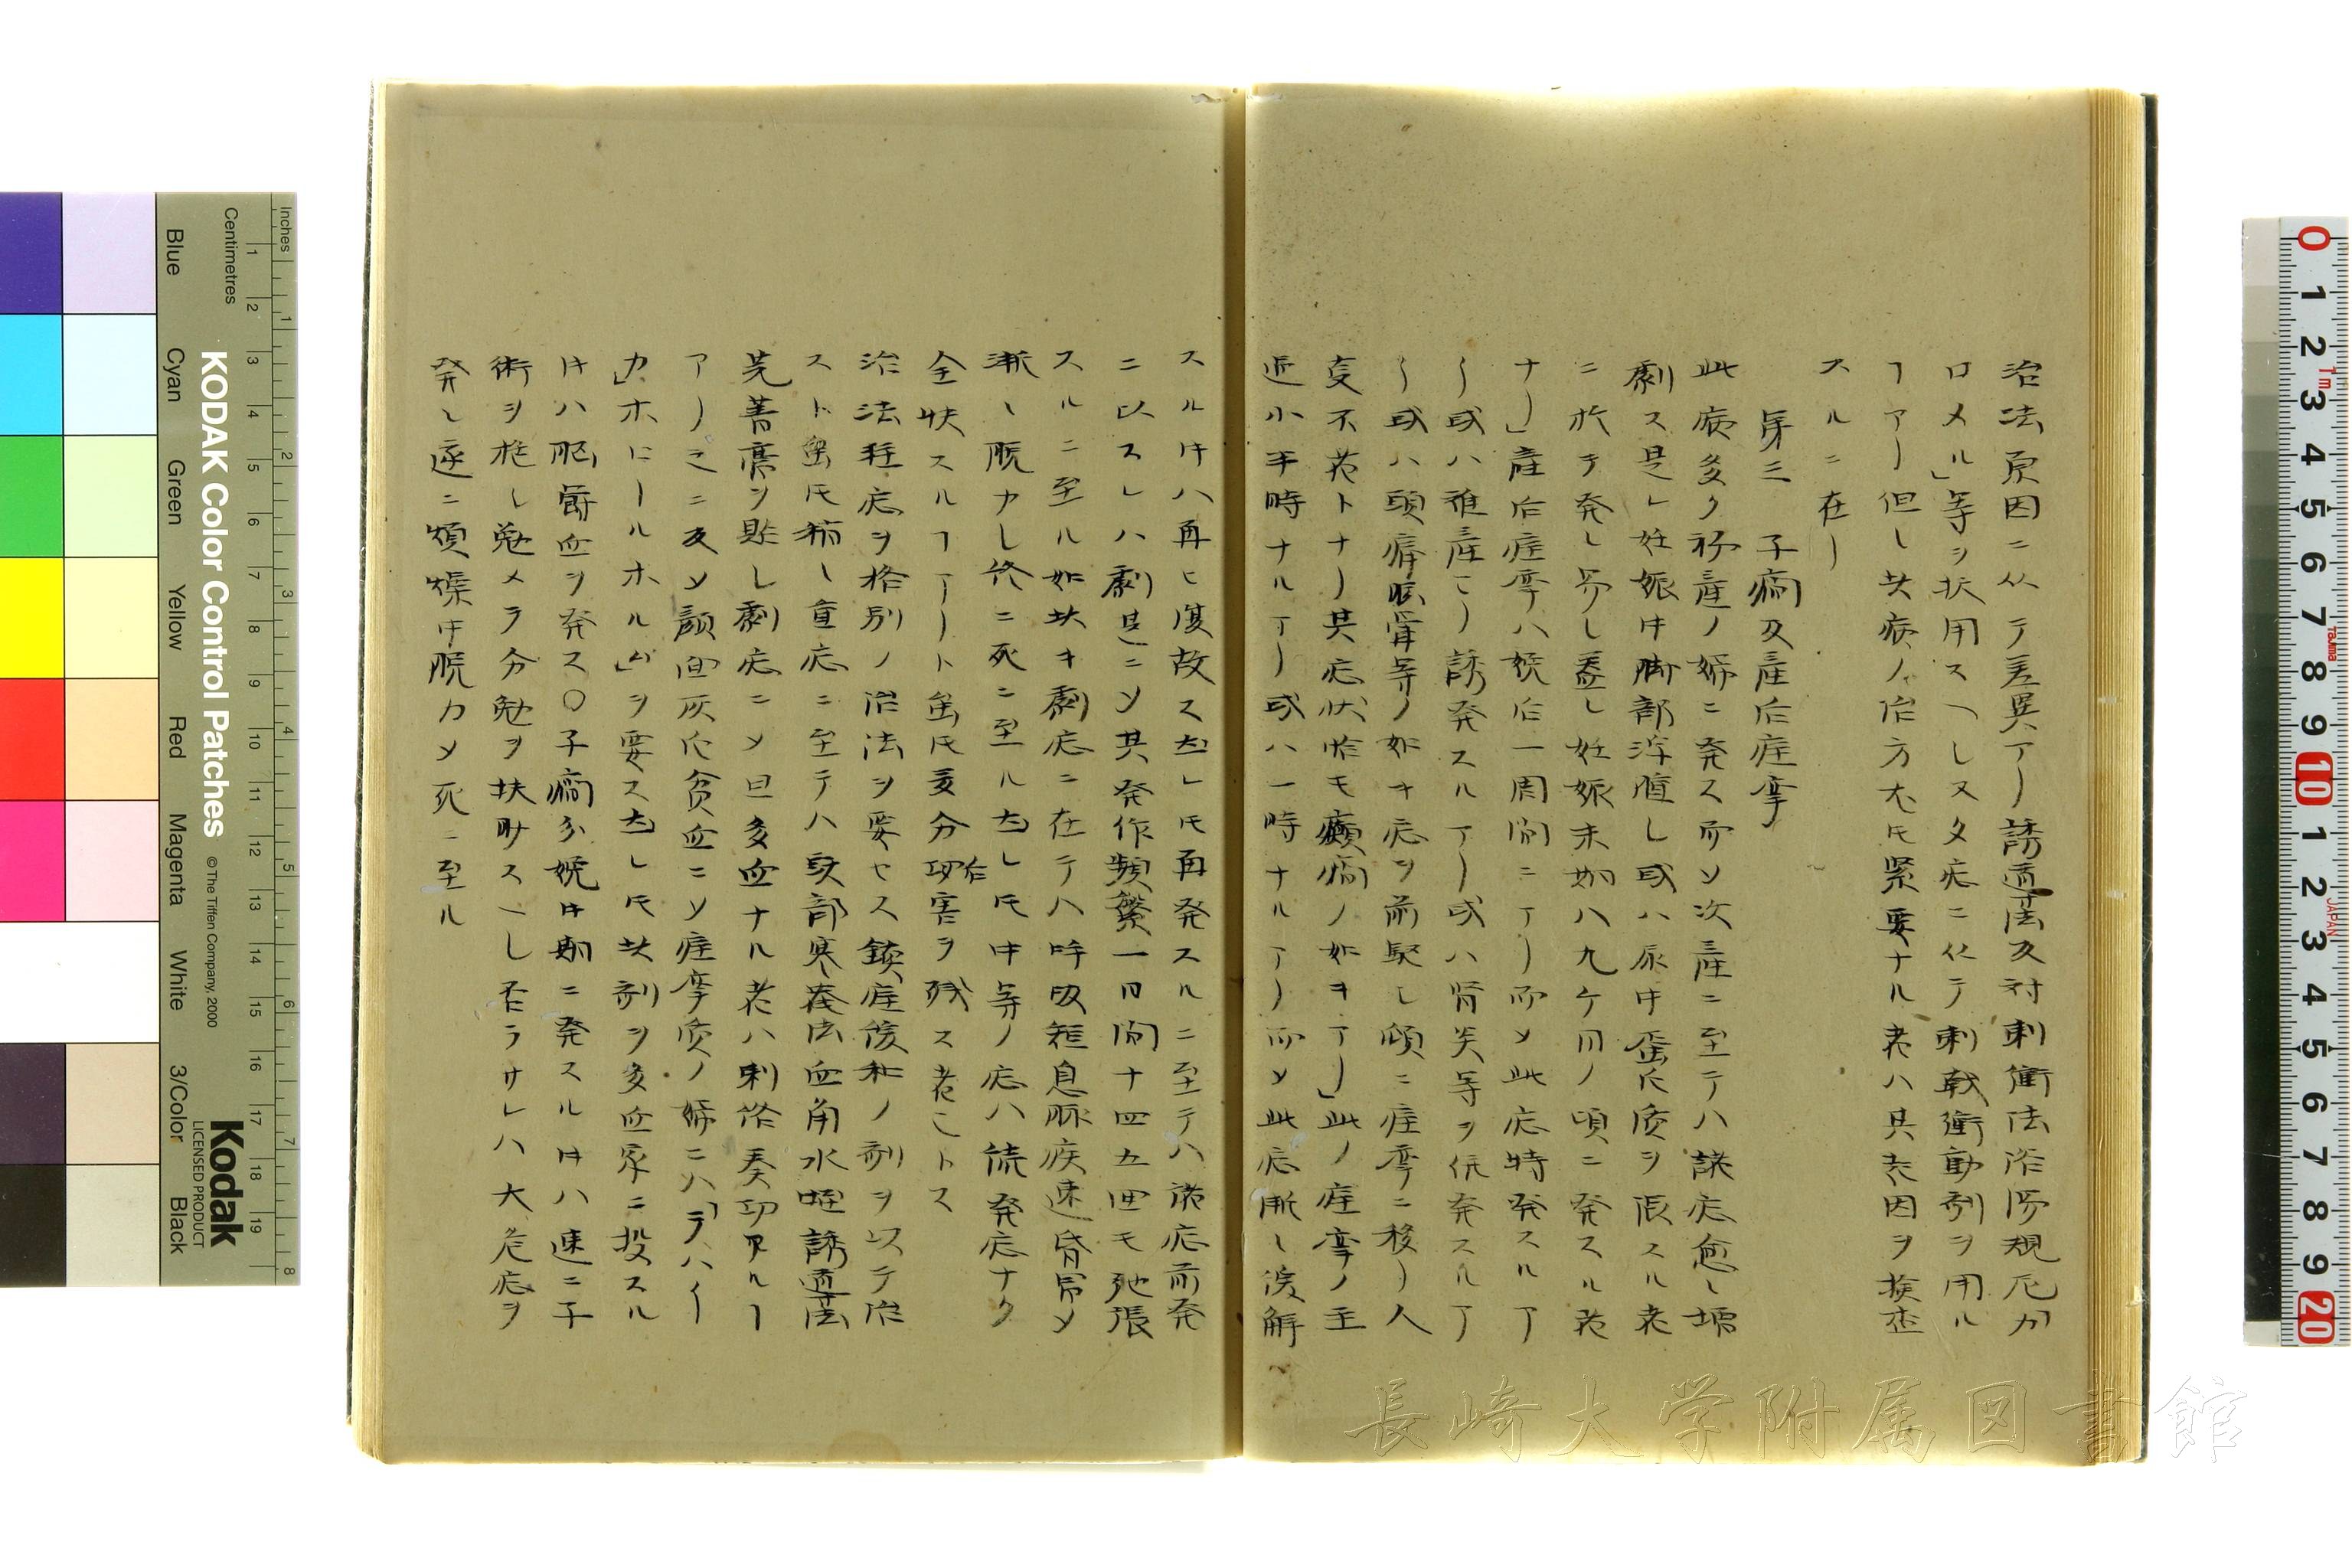 治法原因ニ从テ差異アリ誘導法及対刺衝法浴湯規尼カ
ロメル」等ヲ扶用スヘシ又タ症ニ依テ刺戟衝動剤ヲ用ル
ヿアリ但シ此病ノ治方尤モ緊要ナル者ハ其素因ヲ挨查
スルニ在リ
第三 子癇及産后痙攣
此病多ク初産ノ婦ニ発ス而メ次産ニ至テハ諸症愈ヽ増
劇ス是レ妊娠中脚部浮腫シ或ハ尿中蛋白質ヲ張スル者
ニ於テ発シ易シ蓋シ妊娠末如八九ケ月ノ頃ニ発スル者
ナリ」産后痙攣ハ娩后一周間ニアリ而メ此症特発スルヿ
リ或ハ難産ニリ誘発スルヿアリ或ハ腎炎等ヲ併発スルヿ
リ或ハ頭痛眩暈等ノ如キ症ヲ前駆シ傾ニ痙攣ニ移リ人
支不省トナリ其症状恰モ癲癇ノ如キヿアリ」此ノ痙攣ノ主
近小半時ナルヿアリ或ハ一時ナルヿアリ而メ此症漸ヽ緩解
スル时ハ再ヒ復故ス然レ氏再発スルニ至テハ諸症前発
ニ以スレハ劇甚ニメ其発作頻繁一日間十四五回モ弛張
スルニ至ル如此キ劇症ニ在テハ呼吸短息脈疾速昏冒メ
漸ヽ脱力シ終ニ死ニ至ル然レ氏中等ノ症ハ続発症ナク
全快スルヿアリト虽氏多分功害ヲ残ス者ニトス
治
治法軽症ヲ格別ノ治法ヲ要セス鎮痙緩和ノ剤ヲ以テ治
スト虽氏稍ヽ重症ニ至テハ頭部寒巻法血角水蛭誘導法
芫菁膏ヲ貼シ劇症ニメ且多血ナル者ハ刺絡奏功アルヿ
アリ之ニ反メ顔面灰白貧血ニメ痙攣質ノ婦ニハ「ラハイ
カ」ホロールホルム」ヲ要ス然レ氏此剤ヲ多血家ニ投スル
时ハ脳欝血ヲ発ス〇子癇分娩时期ニ発スル时ハ速ニ子
術ヲ施シ勉メテ分勉ヲ扶助スヘシ否ラサレハ大危症ヲ
発シ遂ニ煩燥中脱力メ死ニ至ル
長崎大学附属図書館
KODAK Color Control Patches
© The Tiffen Company, 2000
Kodak
LICENSED PRODUCT
Inches
Centimetres
Blue
Cyan
Green
Yellow
Red
Magenta
White
3/Color
Black